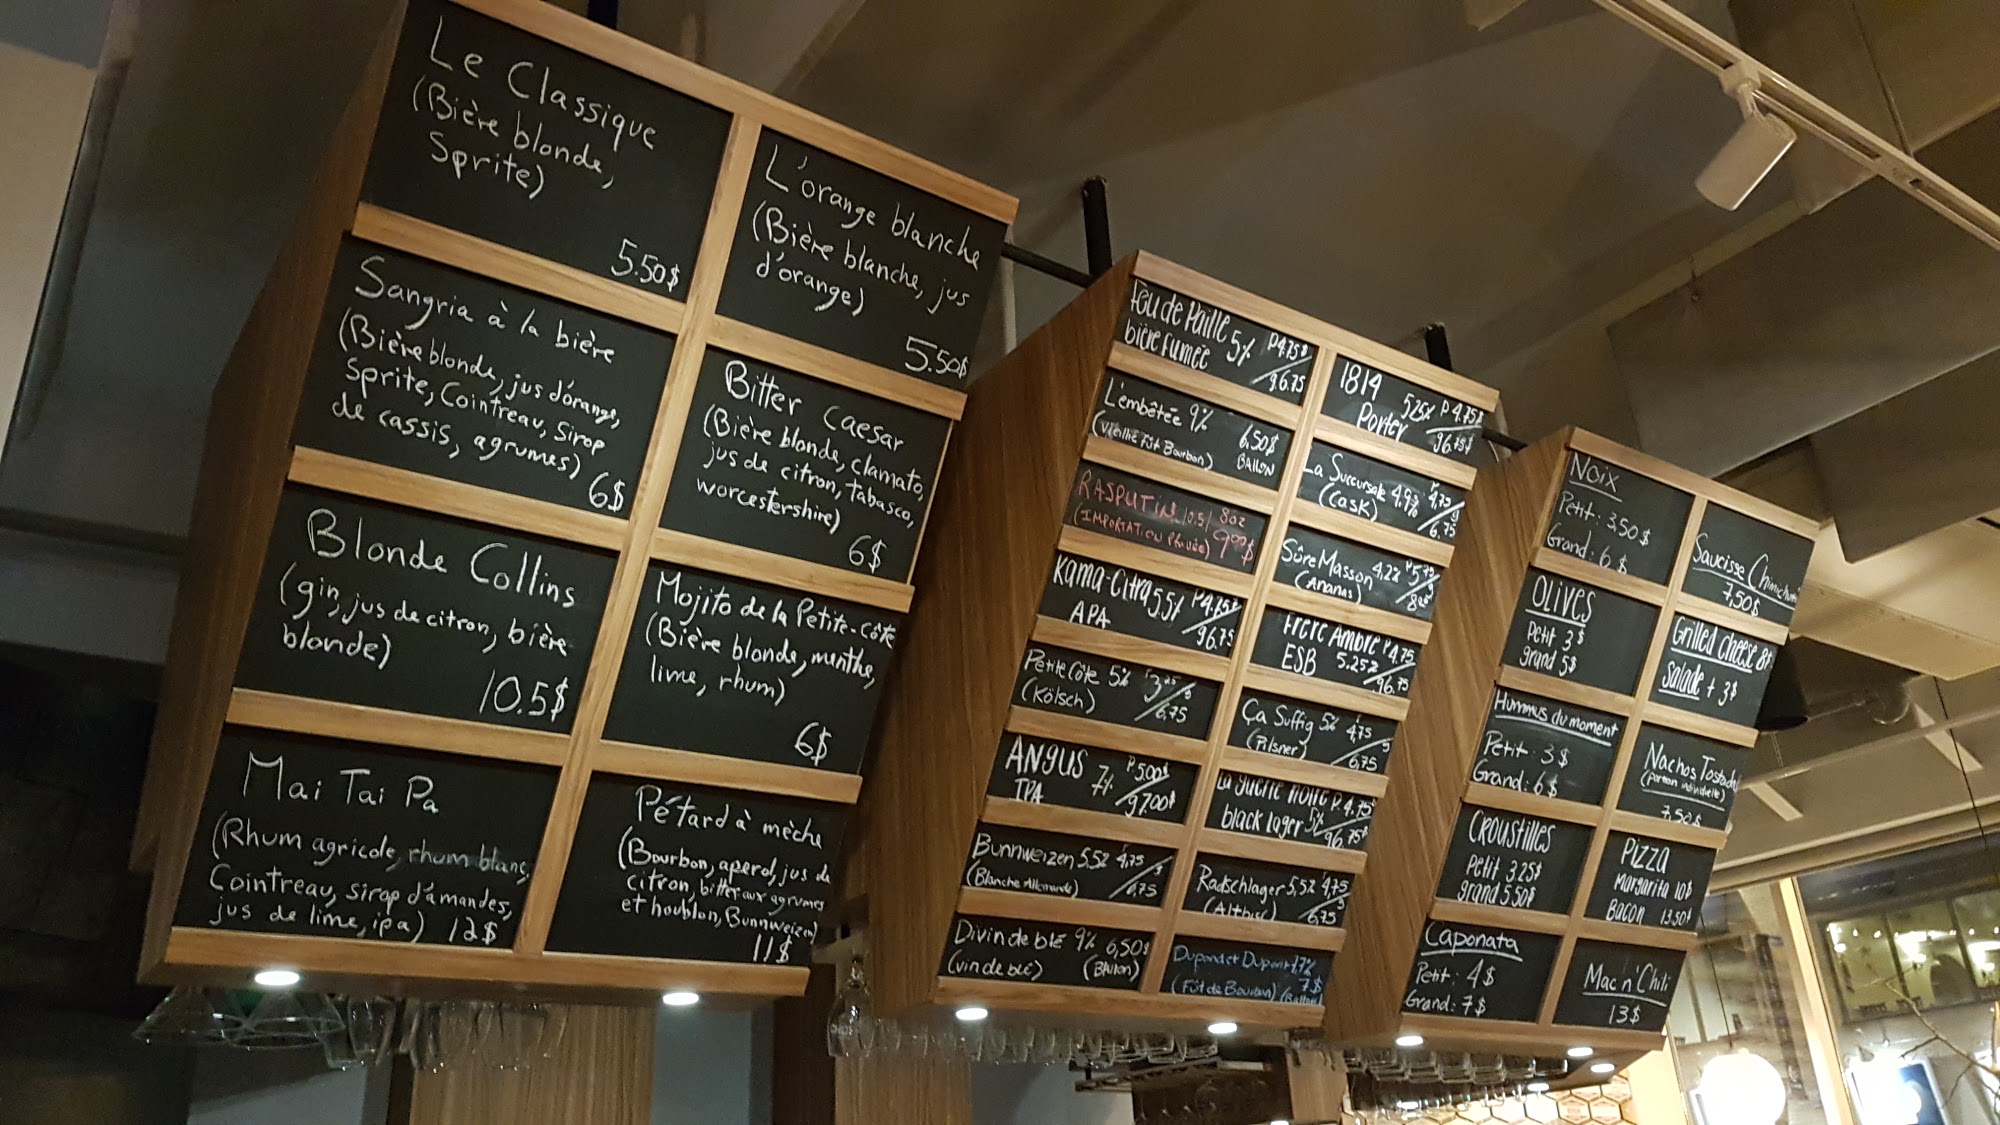 Le Classique
(Bière blonde,
Sprite)
5.50$
Sangria à la bière
(Bière blonde, jus d'orange,
Sprite, Cointreau, Sirop
de cassis, agrumes)
6$
Blonde Collins
(gin, jus de citron, bière
blonde)
10.5$
Mai Tai Pa
(Rhum agricole, rhum blanc,
Cointreau, sirop d'amandes,
jus de lime, ipa) 12$
L'orange blanche
(Bière blanche, jus
d'orange)
5.50$
Bitter caesar
(Bière blonde, clamato,
jus de citron, tabasco,
worcestershire)
6$
Mojito de la Petite-Côte
(Bière blonde, menthe,
lime, rhum)
6$
Pétard à mèche
(Bourbon, aperol, jus de
citron, bitter aux agrumes
et houblon, Bunnweizen)
11$
Feu de Paille 5% P4.75$
bière fumée g6.75
L'embêtée 9% 6,50$
(Vieillie Fût Bourbon) BALLON
RASPUTIN 10.5/ 8oz
(IMPORTATION PRIVÉE) 9.00$
Kama-Citra 5.5% P4.75$
APA g6.75
Petite Côte 5% 3.25
(Kölsch) 6,75
ANGUS 7% P5.00$
IPA g7.00$
Bunnweizen 5,5% 4,75
(Blanche Allemande) 6,75
Divin de blé 9% 6,50$
(vin de blé) (BAllon)
1814 5.25% P4.75$
Porter g6.75$
La Succursale 4,9% 4,75
(Cask) 6.75
Sûre Masson 4,2% 5,75
(Ananas)
Frère Ambré P4.75
ESB 5.25% g6.75
Ça Suffig 5% 4,75
(Pilsner) 6,75
La guerre noire P.4.75$
black lager 5% g6.75$
Radschlager 5,5% 4,75
(Altbier) 6,75
Dupond et Dupont 7,7%
7$
(Fût de Bourbon) (Ballon)
Noix
Petit: 3,50$
Grand: 6$
OLIVES
Petit 3$
grand 5$
Hummus du moment
Petit: 3$
Grand: 6$
CROUSTILLES
Petit 3.25$
grand 5.50$
Caponata
Petit: 4$
Grand: 7$
Saucisse
7,50$
Grilled cheese 8$
salade + 3$
Nachos Tostada
(portion individuelle)
7,50$
Pizza
Margarita 10$
Bacon 13.50$
Mac n' Chili
13$